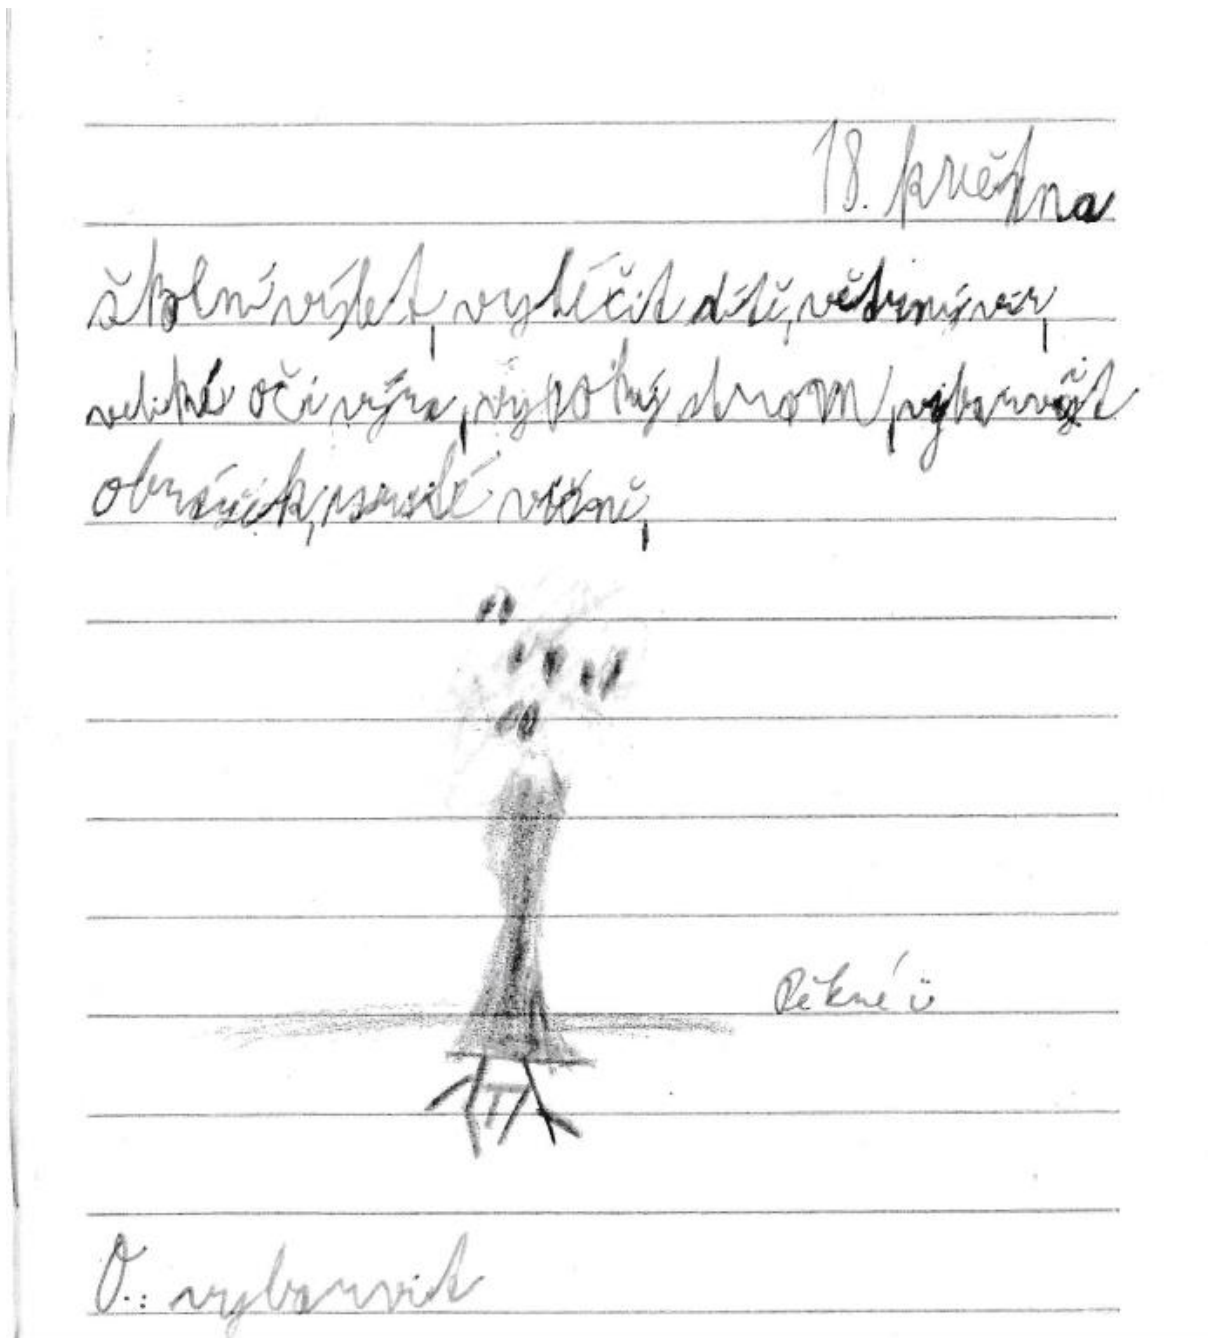 18. května
školní výlet, vyléčit dítě, větrný vír,
veliké oči výra, vysoký strom, vybarvit
obrázek, prosté vězně,
Pěkné ü
O.: vybarvit